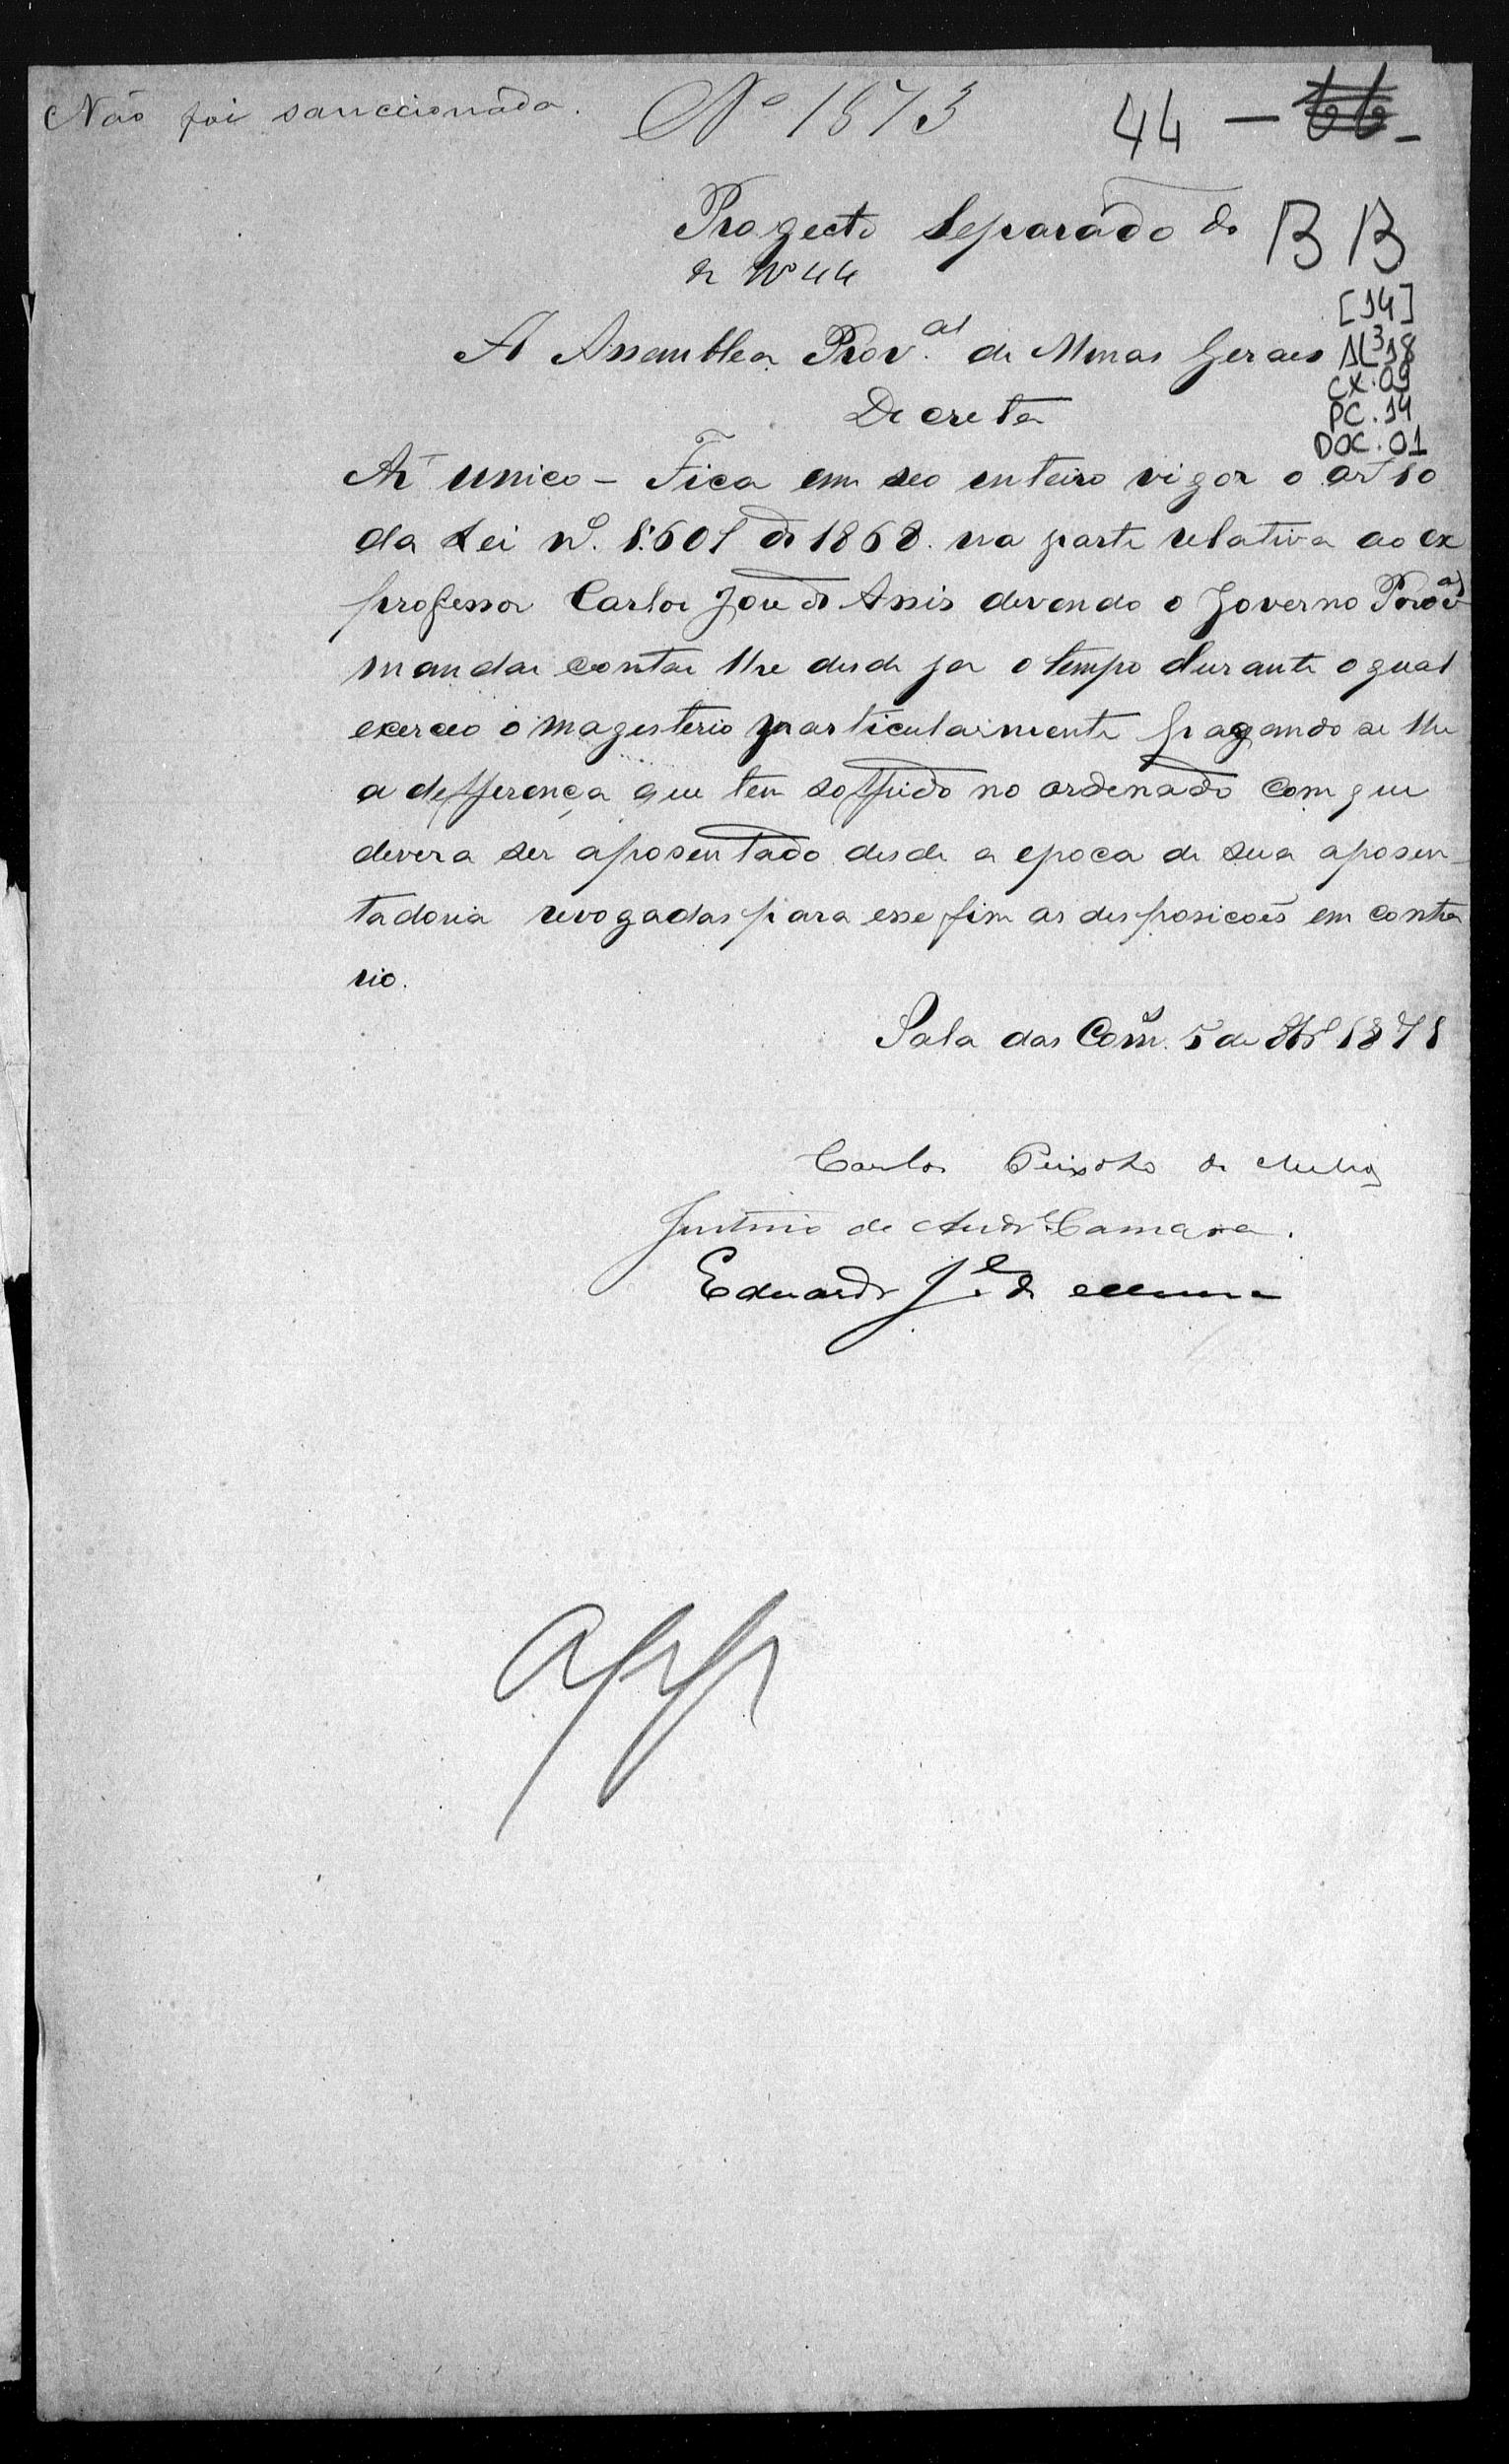 Não foi sanccionada.
Nº 1873
44 —
Progecto Separado do
de Nº 44
B B
[14]
AL³18
CX.09
PC.14
DOC.01
A Assemblea Prov.al de Minas Geraes
Decreta
Art unico – Fica em seo enteiro vigor o art 10
da Lei nº. 1:601 de 1868. na parte relativa ao ex
professor Carlos José de Assis devendo o Governo Proval
mandar contar lhe desde ja o tempo durante o qual
exerceo o magesterio particularmente pagando se lhe
a defferença que tem soffrido no ordenado com que
devera ser aposentado desde a epoca de sua aposen-
tadoria revogadas para esse fim as desposicoẽs em contra
rio.
Sala das Com. 5 de 1871
Carlos Peixoto de Mello
Justino de Andre Camara.
Eduardo Je. de
App